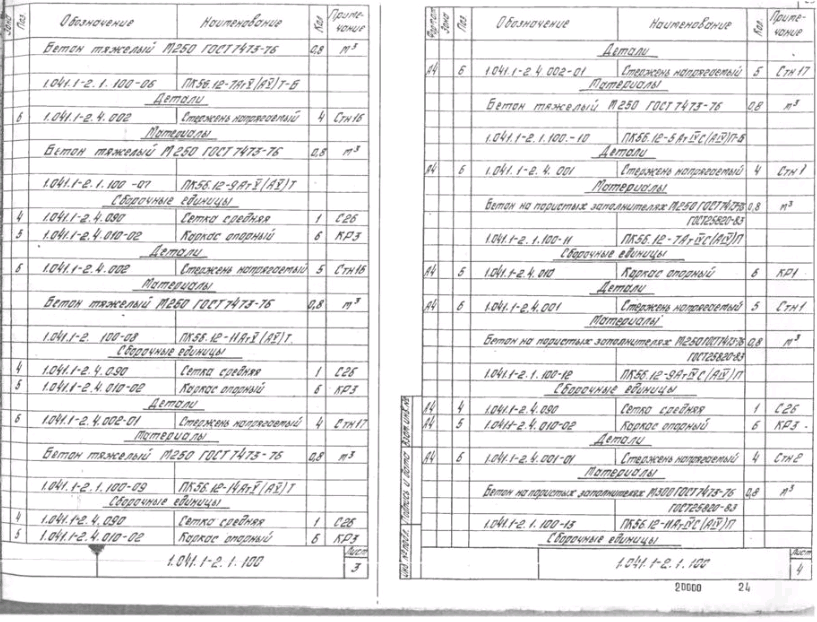 Зона Поз Обозначение Наименование Кол Примечание
Бетон тяжелый М250 ГОСТ 7473-76 0,8 м³
1.041.1-2.1.100-06 ПК56.12-7АтV(АV)Т-Б
Детали
6 1.041.1-2.4.002 Стержень напрягаемый 4 Стн16
Материалы
Бетон тяжелый М250 ГОСТ 7473-76 0,8 м³
1.041.1-2.1.100-07 ПК56.12-9АтV(АV)Т
Сборочные единицы
4 1.041.1-2.4.090 Сетка средняя 1 С26
5 1.041.1-2.4.010-02 Каркас опорный 6 КР3
Детали
6 1.041.1-2.4.002 Стержень напрягаемый 5 Стн16
Материалы
Бетон тяжелый М250 ГОСТ 7473-76 0,8 м³
1.041.1-2. 100-08 ПК56.12-11АтV(АV)Т.
Сборочные единицы
4 1.041.1-2.4.090 Сетка средняя 1 С26
5 1.041.1-2.4.010-02 Каркас опорный 6 КР3
Детали
6 1.041.1-2.4.002-01 Стержень напрягаемый 4 Стн17
Материалы
Бетон тяжелый М250 ГОСТ 7473-76 0,8 м³
1.041.1-2.1.100-09 ПК56.12-14АтV(АV)Т
Сборочные единицы
4 1.041.1-2.4.090 Сетка средняя 1 С26
5 1.041.1-2.4.010-02 Каркас опорный 6 КР3
1.041.1-2.1.100 Лист
3
Формат Зона Поз Обозначение Наименование Кол. Примечание
Детали
А4 6 1.041.1-2.4.002-01 Стержень напрягаемый 5 Стн17
Материалы
Бетон тяжелый М250 ГОСТ 7473-76 0,8 м³
1.041.1-2.1.100.-10 ПК56.12-5АтIVС(АIV)П-Б
Детали
А4 6 1.041.1-2.4.001 Стержень напрягаемый 4 Стн1
Материалы
Бетон на пористых заполнителях М250 ГОСТ7473-76 0,8 м³
ГОСТ25820-83
1.041.1-2.1.100-11 ПК56.12-7АтIVС(АIV)П
Сборочные единицы
А4 5 1.041.1-2.4.010 Каркас опорный 6 КР1
Детали
А4 6 1.041.1-2.4.001 Стержень напрягаемый 5 Стн1
Материалы
Бетон на пористых заполнителях М250 ГОСТ7473-76 0,8 м³
ГОСТ25820-83
1.041.1-2.1.100-12 ПК56.12-9АтIVС(АIV)П
Сборочные единицы
А4 4 1.041.1-2.4.090 Сетка средняя 1 С26
А4 5 1.041.1-2.4.010-02 Каркас опорный 6 КР3
Детали
А4 6 1.041.1-2.4.001-01 Стержень напрягаемый 4 Стн2
Материалы
Бетон на пористых заполнителях М300 ГОСТ7473-76 0,8 м³
ГОСТ25820-83
1.041.1-2.1.100-13 ПК56.12-11АтIVС(АIV)П
Сборочные единицы
Инв. № подл. Подпись и дата Взам.инв.№
1.041.1-2.1.100 Лист
4
20000 24